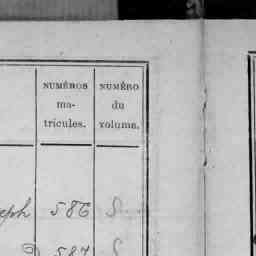 NUMÉROS
ma-
tricules.
NUMÉRO
du
volume.
eph 586 S
587 S